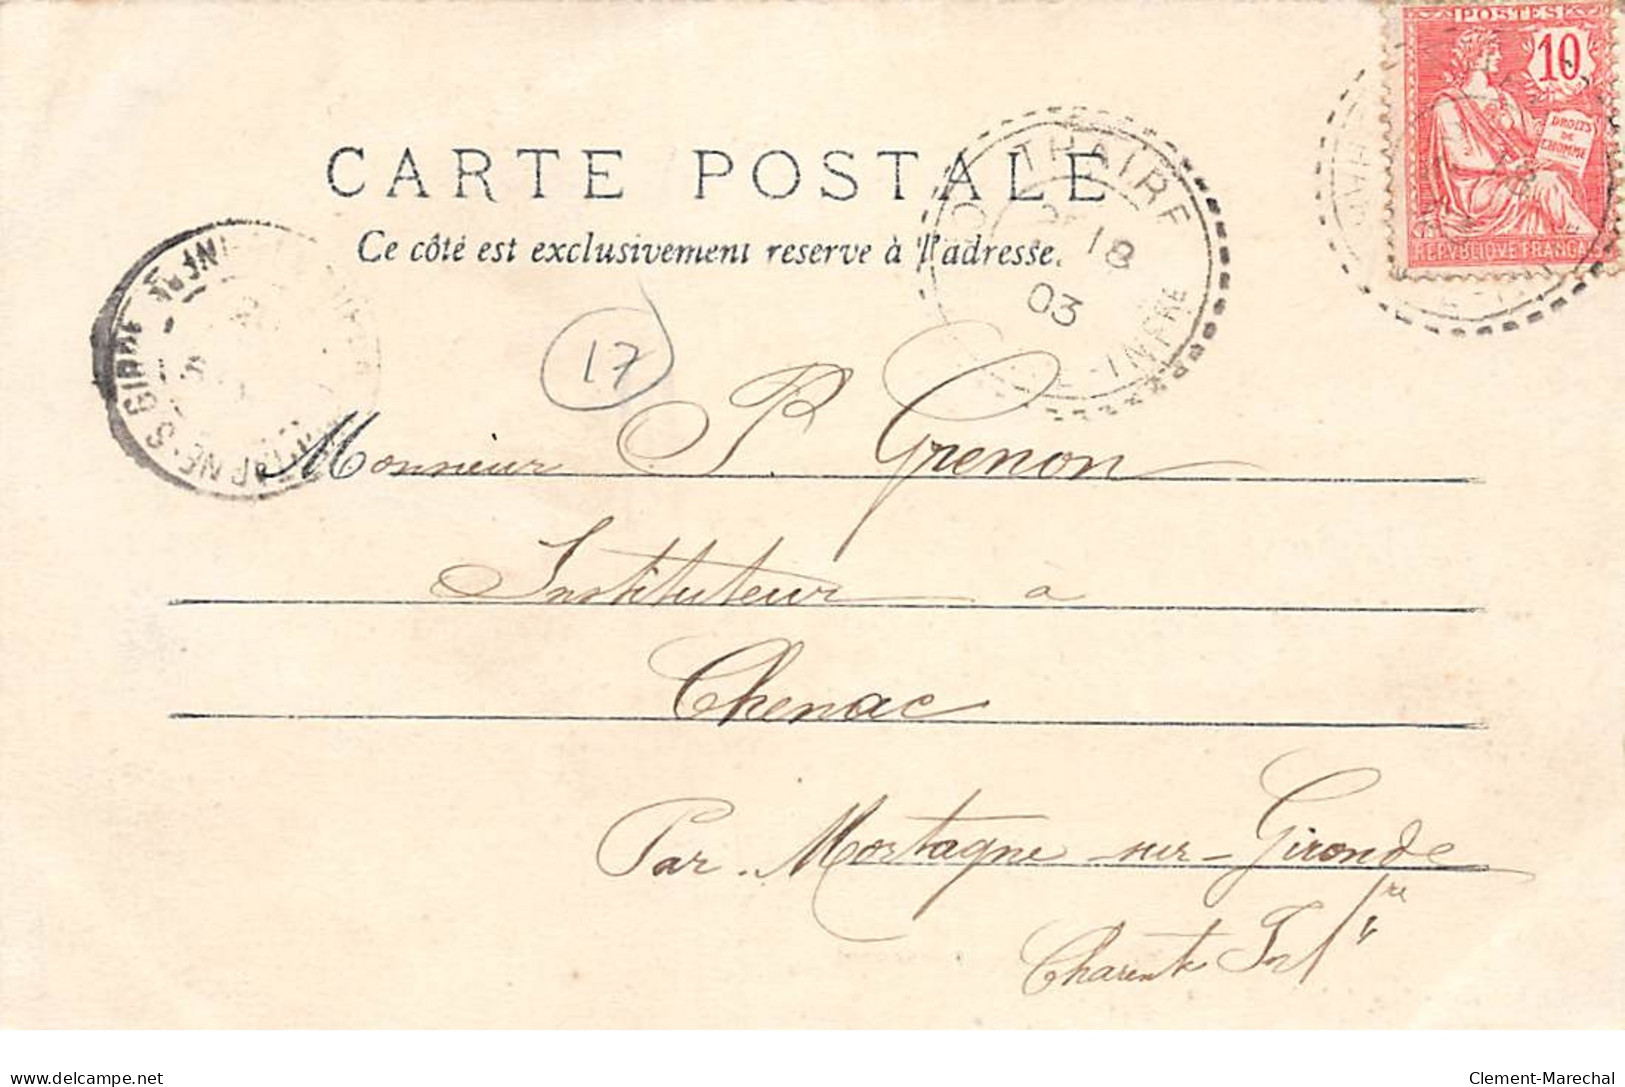 POSTES
10
DROITS
DE
L'HOMME
REPVBLIQUE FRANCAI
CARTE POSTALE
Ce côté est exclusivement reserve à l'adresse.
THAIRE
18
03
INFRE
17
Monsieur P. Grenon
Instituteur a
Chenac
Par Mortagne-sur-Gironde
Charente Infre
delcampe.net
Clement-Marechal